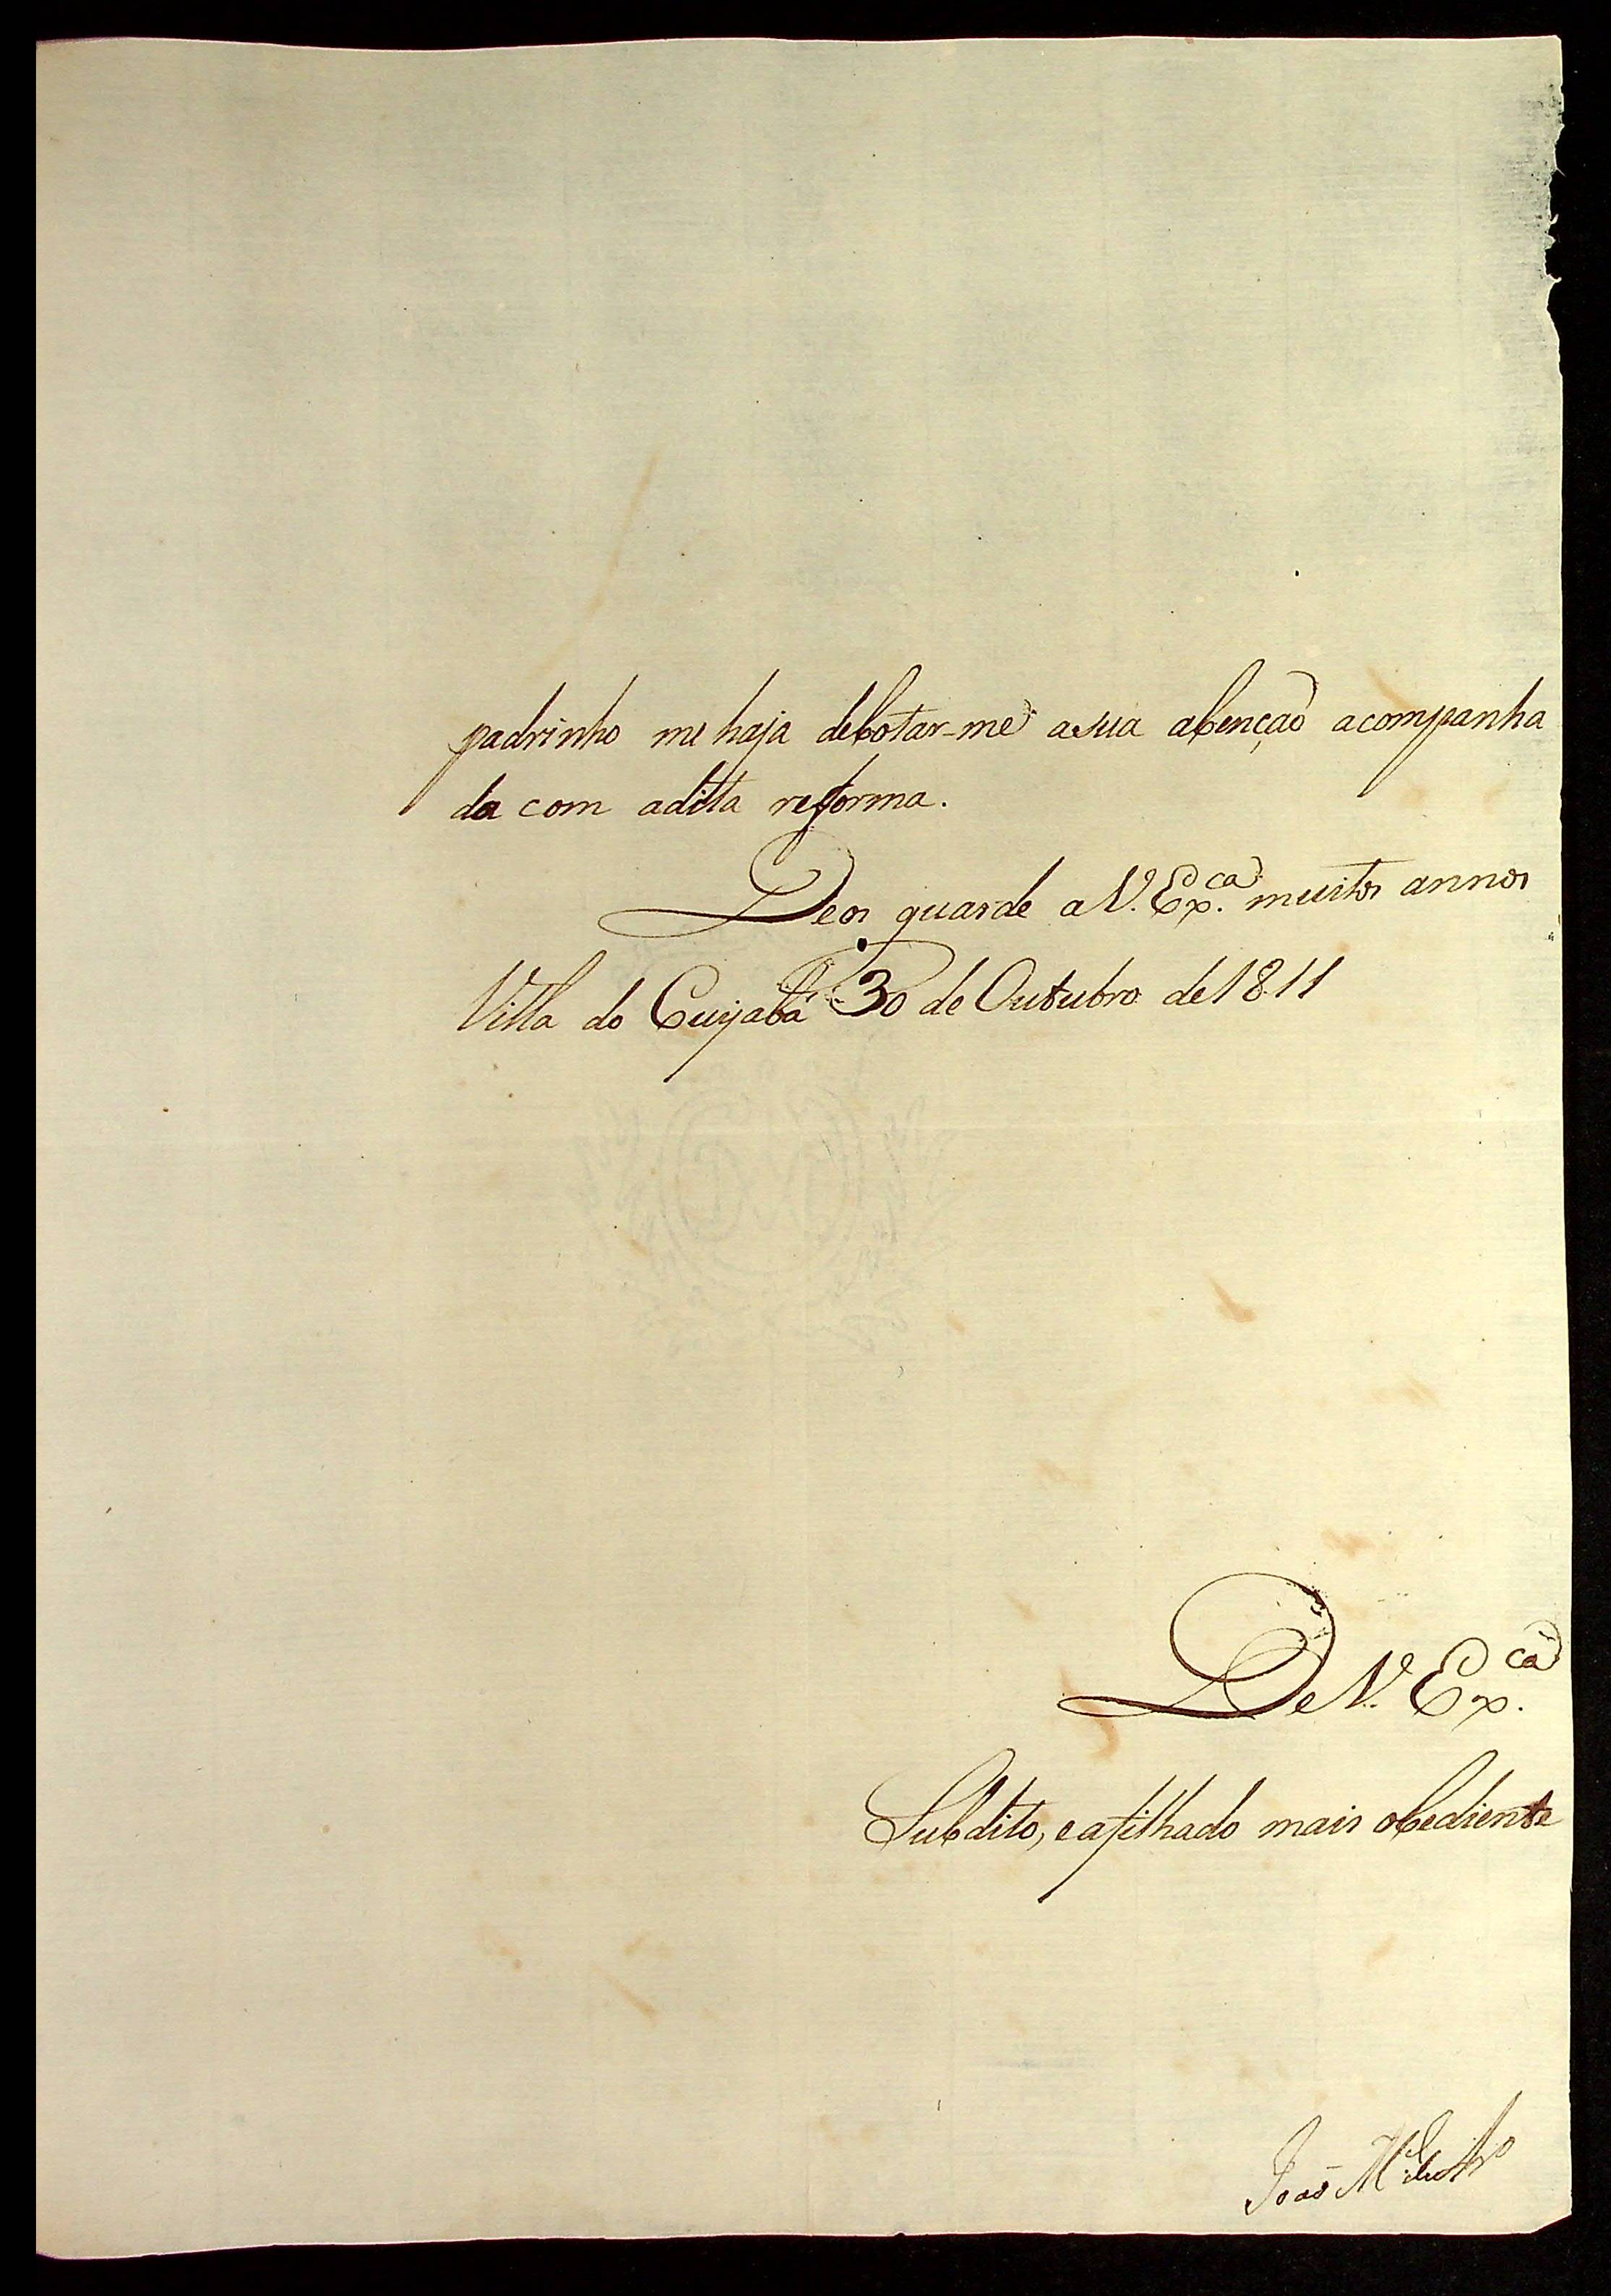 padrinho me haja debotar-me asua abençaõ acompanha
da com adita reforma.
Deos guarde aV. Ex.ca muitos annos
Villa do Cuyabá 30 de Outubro de 1811
De V. Ex.ca
Subdito, eafilhado mais obediente
Joaõ M.el